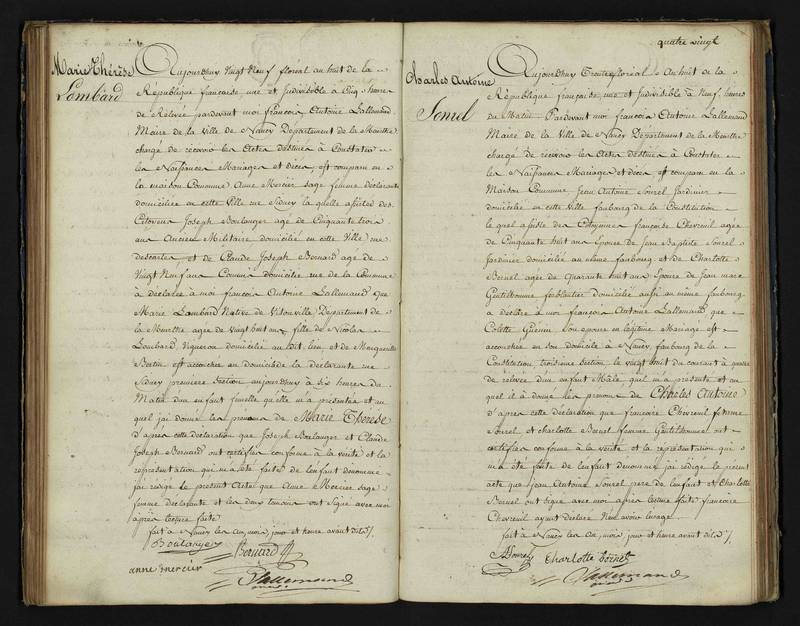 Marie Thérèse
Lombard
Aujourdhuy vingt Neuf floréal an huit de la
République française une et Indivisible à Cinq heures
de Relevée pardevant moi françois Antoine Lallemand
Maire de la Ville de Nancy Département de la Meurthe
chargé de recevoir les Actes destinés à Constater
les Naissances Mariages et décès est comparu en
la maison Commune Anne Mercier sage femme déclarante
domiciliée en cette Ville rue Sidney la quelle assistée des
Citoyens Joseph Boulanger agé de Cinquante trois
ans Ancien Militaire domicilié en cette Ville rue
descartes, et de Claude Joseph Bernard age de
Vingt Neuf ans Commis domicilié rue de la Commune
à déclaré à moi françois Antoine Lallemand que
Marie Lombard Native de Département de
la Meurthe agée de vingt huit ans, fille de Nicolas
Lombard, Vigneron domicilié au dit lieu, et de Marguerite
Bertin est accouchée au domicile de la déclarante rue
Sidney première Section aujourdhuy à six heures du
Matin d'un enfant femelle qu'elle m'a présentée et au
quel j'ai donné les prénoms de Marie Thérèse
d'après cette déclaration que Joseph Boulanger et Claude
Joseph Bernard ont certifiée conforme à la vérité et la
représentation qui m'a été faite de l'enfant dénommé
j'ai rédigé le présent Acte que Anne Mercier sage
femme déclarante et les deux témoins ont Signé avec moi
après lecture faite
fait à Nancy les an, mois, jour et heure avant dits
Boulanger
Bernard
anne mercier
Lallemand
quatre vingt
Charles Antoine
Sorrel
Aujourdhuy Trente floréal Anhuit de la
République française une et Indivisible à Neuf heures
du Matin Pardevant moi françois Antoine Lallemand
Maire de la Ville de Nancy Département de la Meurthe
chargé de recevoir les Actes destinés à Constater
les Naissances Mariages et décès est comparu en la
Maison Commune Jean Antoine Sorrel Jardinier
domicilié en cette Ville faubourg de la Constitution
le quel assisté des Citoyennes françoise Chevreuil agée
de Cinquante huit ans Epouse de Jean Baptiste Sorrel
Jardinier domicilié au même faubourg et de Charlotte
agée de quarante huit ans Epouse de Jean marie
Gentilhomme ferblantier domicilié aussi au même faubourg
a déclaré à moi françois Antoine Lallemand que
Colette Guérin son epouse en légitime Mariage est
accouchée en son domicile à Nancy faubourg de la
Constitution troisieme Section le vingt huit du courant à quatre
de relevée d'un enfant Mâle quil m'a présenté et au
quel il à donné les prénoms de Charles Antoine
d'après cette déclaration que françoise Chevreuil femme
Sorrel et charlotte femme Gentilhomme ont
certifiée conforme à la vérité et la représentation qui
m'a été faite de l'enfant dénommé j'ai rédigé le présent
acte que Jean Antoine Sorrel pere de l'enfant et Charlotte
ont signé avec moi après lecture faite françoise
Chevreuil ayant déclaré N'en avoir l'usage
fait à Nancy les an, mois, jour et heure avant dits
A Sorrel
Charlotte
Lallemand